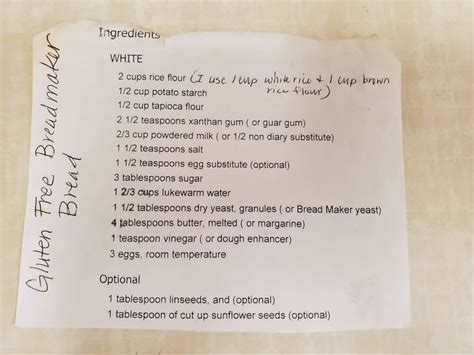 Gluten Free Breadmaker
Bread
Ingredients
WHITE
2 cups rice flour (I use 1 cup white rice + 1 cup brown
rice flour)
1/2 cup potato starch
1/2 cup tapioca flour
2 1/2 teaspoons xanthan gum ( or guar gum)
2/3 cup powdered milk ( or 1/2 non diary substitute)
1 1/2 teaspoons salt
1 1/2 teaspoons egg substitute (optional)
3 tablespoons sugar
1 2/3 cups lukewarm water
1 1/2 tablespoons dry yeast, granules ( or Bread Maker yeast)
4 tablespoons butter, melted ( or margarine)
1 teaspoon vinegar ( or dough enhancer)
3 eggs, room temperature
Optional
1 tablespoon linseeds, and (optional)
1 tablespoon of cut up sunflower seeds (optional)